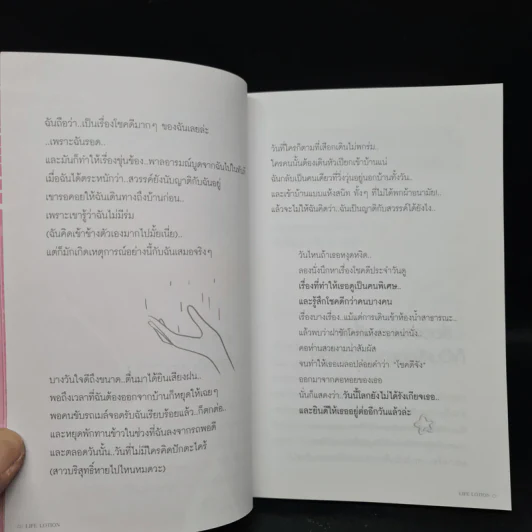 ฉันถือว่า..เป็นเรื่องโชคดีมากๆ ของฉันเลยล่ะ
..เพราะฉันรอด..
และมันก็ทำให้เรื่องขุ่นข้อง..พาลอารมณ์บูดจากฉันไปในทันที
เมื่อฉันได้ตระหนักว่า..สวรรค์ยังนับญาติกับฉันอยู่
เขารอคอยให้ฉันเดินทางถึงบ้านก่อน..
เพราะเขารู้ว่าฉันไม่มีร่ม
(ฉันคิดเข้าข้างตัวเองมากไปมั้ยเนี่ย)..
แต่ก็มักเกิดเหตุการณ์อย่างนี้กับฉันเสมอจริงๆ
บางวันใจดีถึงขนาด..ตื่นมาได้ยินเสียงฝน..
พอถึงเวลาที่ฉันต้องออกจากบ้านก็หยุดให้เฉยๆ
พอคนขับรถเมล์จอดรับฉันเรียบร้อยแล้ว..ก็ตกต่อ..
และหยุดพักทานข้าวในช่วงที่ฉันลงจากรถพอดี
และตลอดวันนั้น..วันที่ไม่มีใครคิดปักตะไคร้
(สาวบริสุทธิ์หายไปไหนหมดวะ)
LIFE LOTION
วันที่ใครก็ตามที่เลือกเดินไม่พกร่ม..
ใครคนนั้นต้องเดินหัวเปียกเข้าบ้านแน่
ฉันกลับเป็นคนเดียวที่วิ่งวุ่นอยู่นอกบ้านทั้งวัน..
และเข้าบ้านแบบแห้งสนิท ทั้งๆ ที่ไม่ได้พกผ้าอนามัย!
แล้วจะไม่ให้ฉันคิดว่า..ฉันเป็นญาติกับสวรรค์ได้ยังไง..
วันไหนถ้าเธอหงุดหงิด..
ลองนั่งนึกหาเรื่องโชคดีประจำวันดู
เรื่องที่ทำให้เธอดูเป็นคนพิเศษ..
และรู้สึกโชคดีกว่าคนบางคน
เรื่องบางเรื่อง..แม้แต่การเดินเข้าห้องน้ำสาธารณะ..
แล้วพบว่าฝาชักโครกแห้งสะอาดน่านั่ง..
คอห่านสวยงามน่าสัมผัส
จนทำให้เธอเผลอปล่อยคำว่า "โชคดีจัง"
ออกมาจากคอหอยของเธอ
นั่นก็แสดงว่า..วันนี้โลกยังไม่ได้รังเกียจเธอ..
และยินดีให้เธออยู่ต่ออีกวันแล้วล่ะ
LIFE LOTION